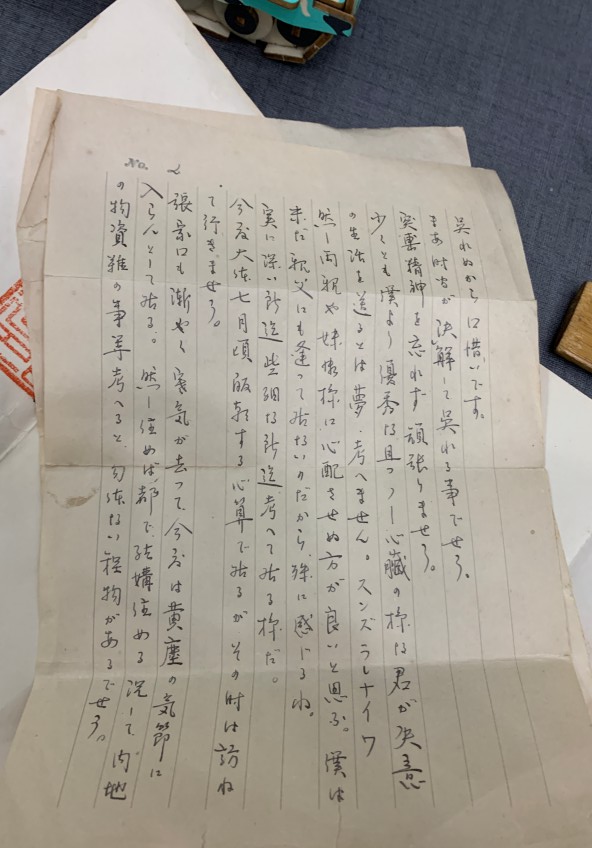 No. 2
呉れぬから口惜いです。
まあ時が決解して呉れる事でせう。
突撃精神を忘れず頑張りませう。
少くとも僕より優秀な且つ心臓の様な君が失意
の生活を送るとは夢考へません。スンズラレナイワ
然し両親や妹様に心配させぬ方が良いと思ふ。僕は
未だ親父にも逢って居ないのだから、殊に感じるね。
実に深い所迄些細な所迄考へて居る様だ。
今度大体七月頃帰郷する心算で居るが、その時は訪ね
て行きませう。
張家口も漸やく寒気が去って、今度は黄塵の気節に
入らんとして居る。然し住めば都で、結構住める。況して、内地
の物資難の事等考へると、勿体ない程物があるでせう。